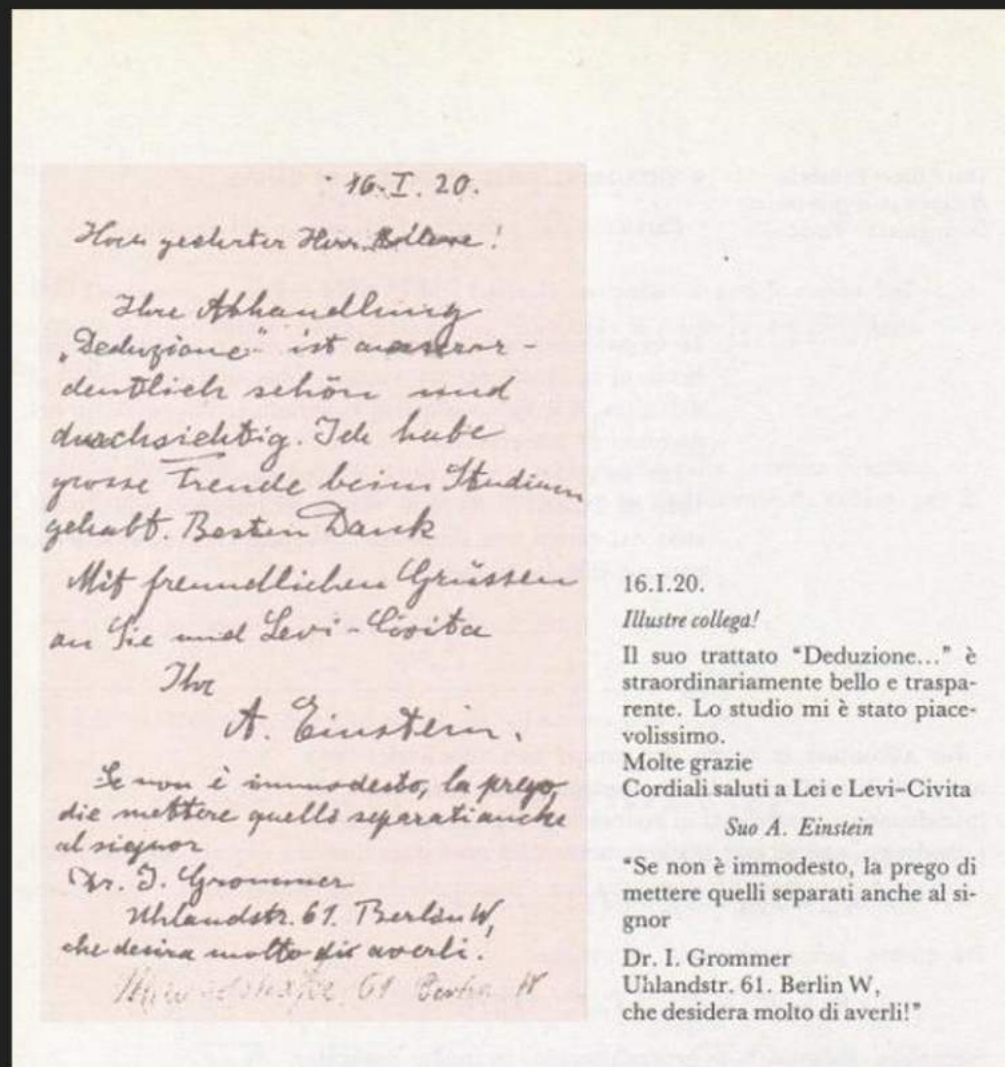 16.I.20.
Hoch geehrter Herr Kollege!
Ihre Abhandlung
„Deduzione" ist ausseror-
dentlich schön und
durchsichtig. Ich habe
grosse Freude beim Studium
gehabt. Besten Dank
Mit freundlichen Grüssen
an Sie und Levi-Civita
Ihr
A. Einstein.
Se non è immodesto, la prego,
die mettere quelli separati anche
al signor
Dr. J. Grommer
Uhlandstr. 61. Berlin W,
che desira molto dir averli!
61 Berlin W
16.I.20.
Illustre collega!
Il suo trattato “Deduzione...” è
straordinariamente bello e traspa-
rente. Lo studio mi è stato piace-
volissimo.
Molte grazie
Cordiali saluti a Lei e Levi-Civita
Suo A. Einstein
“Se non è immodesto, la prego di
mettere quelli separati anche al si-
gnor
Dr. I. Grommer
Uhlandstr. 61. Berlin W,
che desidera molto di averli!”